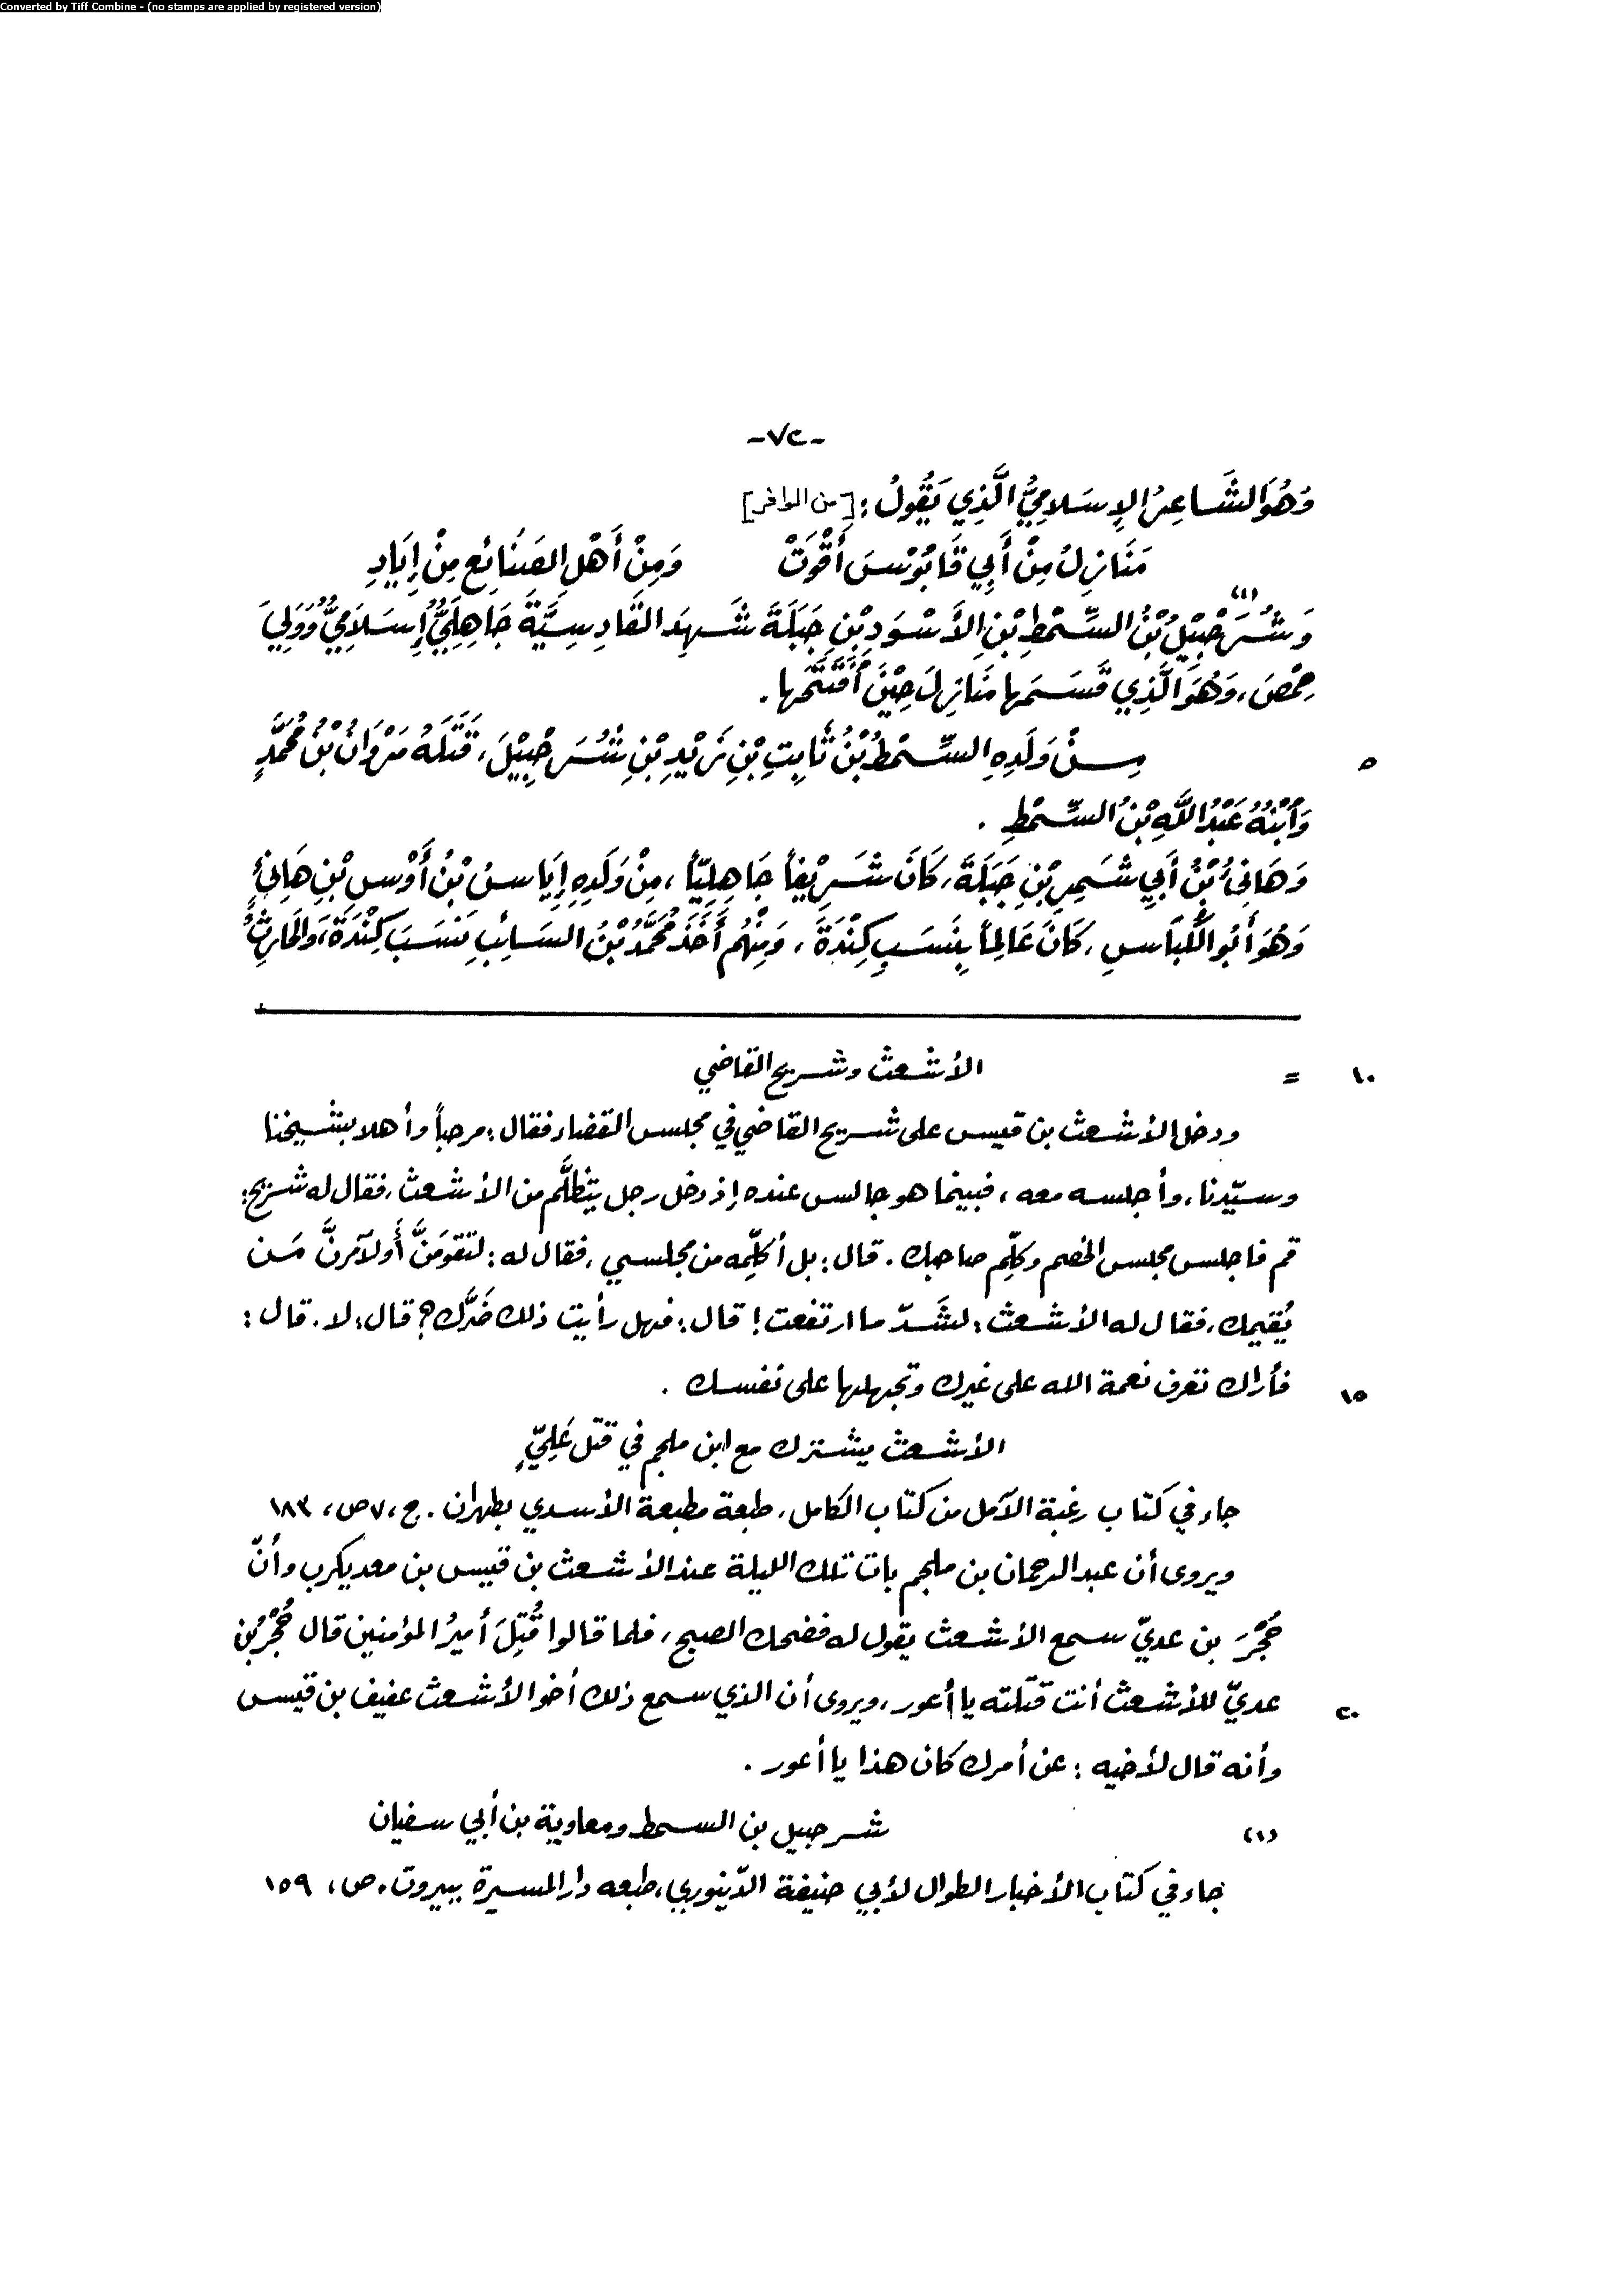 Converted by Tiff Combine - (no stamps are applied by registered version)
-٧٢-
وَهُوَ الشَّاعِرُ الإِسَلامِيُّ الَّذِي يَقُولُ: [من الوافر]
مَنَازِلُ مِنْ أَبِي قَابُوْسَ أَقْوَتْ وَمِنْ أَهْلِ الصَنَائِعِ مِنْ إِيَادِ
وَشُرَحْبِيْلُ بْنُ السِّمْطِ بْنِ الأَسْوَدِ بْنِ جَبَلَةَ شَهِدَ القَادِسِيَّةَ جَاهِلِيٌّ إِسَلَامِيٌّ وَوَلِيَ (١)
حِمْصَ، وَهُوَ الَّذِي قَسَمَها مَنَازِلَ حِيْنَ اُفْتَتَحَها.
٥ مِنْ وَلَدِهِ السِّمْطُ بْنُ ثَابِتِ بْنِ يَزِيْدِ بْنِ شُرَحْبِيْلَ، قَتَلَهُ مَرْوَانُ بْنُ مُحَمَّدٍ
وَابْنُهُ عَبْدُ اللَّهِ بْنُ السِّمْطِ.
وَهَانِئُ بْنُ أَبِي شَمِرِ بْنِ جَبَلَةَ، كَانَ شَرِيْفاً جَاهِلِيّاً، مِنْ وَلَدِهِ إِيَاسُ بْنُ أَوْسِ بْنِ هَانِئٍ
وَهُوَ أَبُو الكُبَاسِ، كَانَ عَالِماً بِنَسَبِ كِنْدَةَ، وَمِنْهُم أَخَذَ مُحَمَّدُ بْنُ السَائِبِ نَسَبَ كِنْدَةَ، وَالحَارِثُ
١٠ = الأشعث وشريح القاضي
ودخل الأشعث بن قيس على شريح القاضي في مجلس القضاء فقال: مرحباً وأهلا بشيخنا
وسيّدنا، وأجلسه معه، فبينما هو جالس عنده إذ دخل رجل يتظلَّم من الأشعث، فقال له شريح:
قم فاجلس مجلس الخصم وكلِّم صاحبك. قال: بل أكلِّمه من مجلسي، فقال له: لتقومَنَّ أو لآمرنَّ مَن
يُقيمك، فقال له الأشعث: لشَدّ ما ارتفعت! قال: فهل رأيت ذلك ضَرَّك؟ قال: لا. قال:
١٥ فأراك تعرف نعمة الله على غيرك وتجهلها على نفسك.
الأشعث يشترك مع ابن ملجم في قتل عَلِيّ
جاء في كتاب رغبة الآمل من كتاب الكامل، طبعة مطبعة الأسدي بطهران. ج، ٧ ص، ١٨٣
ويروى أن عبد الرحمان بن ملجم بات تلك الليلة عند الأشعث بن قيس بن معديكرب وأنّ
حُجْرَ بن عديّ سمع الأشعث يقول له فضحك الصبح، فلما قالوا قُتِلَ أميرُ المؤمنين قال حُجْرُ بن
٢٠ عديّ للأشعث أنت قتلته يا أعور، ويروى أن الذي سمع ذلك أخو الأشعث عفيف بن قيس
وأنه قال لأخيه: عن أمرك كان هذا يا أعور.
(١) شرحبيل بن السمط ومعاوية بن أبي سفيان
جاء في كتاب الأخبار الطوال لأبي حنيفة الدّينوري، طبعه دار المسيرة ببيروت. ص، ١٥٩